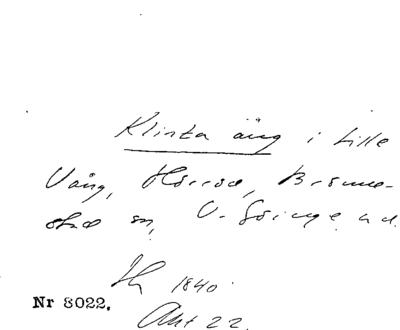 Klinta äng i Lille
Vång, Hörröd, Brönne-
stad sn, V. Göinge hd.
1840
Nr 8022.
Akt 22.